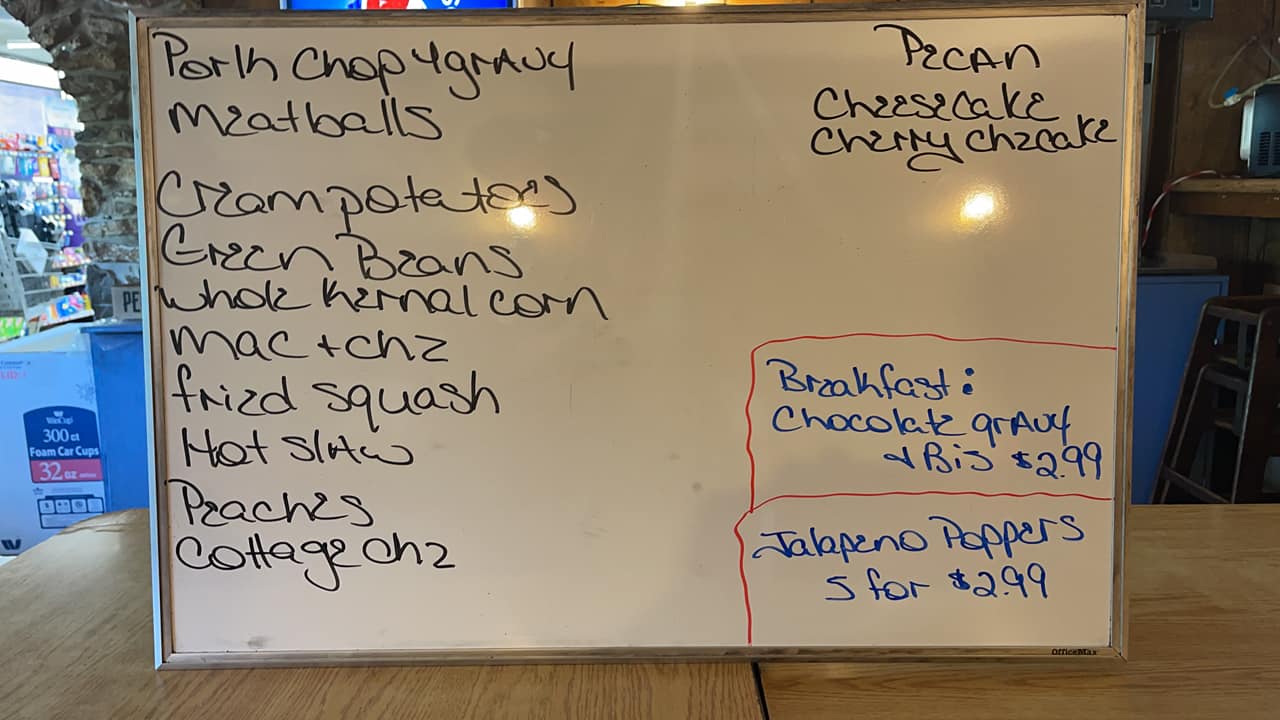 Pork Chop & gravy
Meatballs
Cream potatoes
Green Beans
Whole kernal corn
mac + chz
fried squash
Hot Slaw
Peaches
Cottage chz
Pecan
Cheesecake
Cherry chzcake
Breakfast:
Chocolate gravy
& Bis $2.99
Jalapeno Poppers
5 for $2.99
OfficeMax
PE
WinCup
300 ct
Foam Car Cups
32 oz